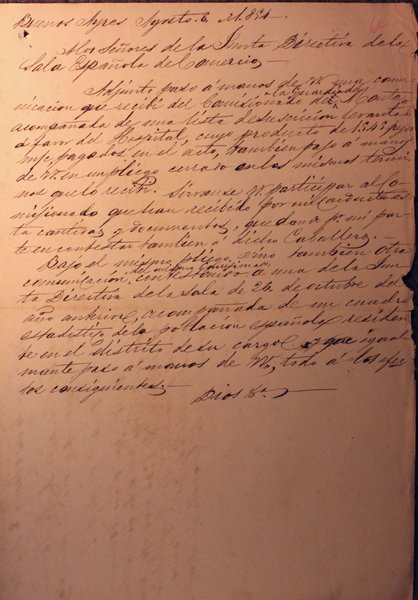 Buenos Ayres Agosto 6 1854
A los Señores de la Junta Directiva de la
Sala Española de Comercio
Adjunto paso á manos de VV. una comu
la Guardia de
nicacion que recibí del Comisionado del
acompañada de una lista de suscricion levantada
á favor del Hospital, cuyo producto de 1545 pesos
pagados en el acto, tambien paso á manos
de VV. en un pliego cerrado en los mismos termi
nos que lo recibí. Sirvanse VV. participar al Co
misionado que han recibido por mi conducto es
ta cantidad y documentos, quedando pr. mi par
te en contestar tambien á dicho Caballero.
Bajo el mismo pliego vino tambien otra
del mismo Comisionado
comunicacion, contestacion á una de la Jun
ta Directiva de la Sala de 26 de octubre del
año anterior, acompañada de un cuadro
estadistico de la poblacion española residen
te en el distrito de su cargo, y que igual
mente paso á manos de VV., todo á los efec
tos consiguientes.
Dios &a.